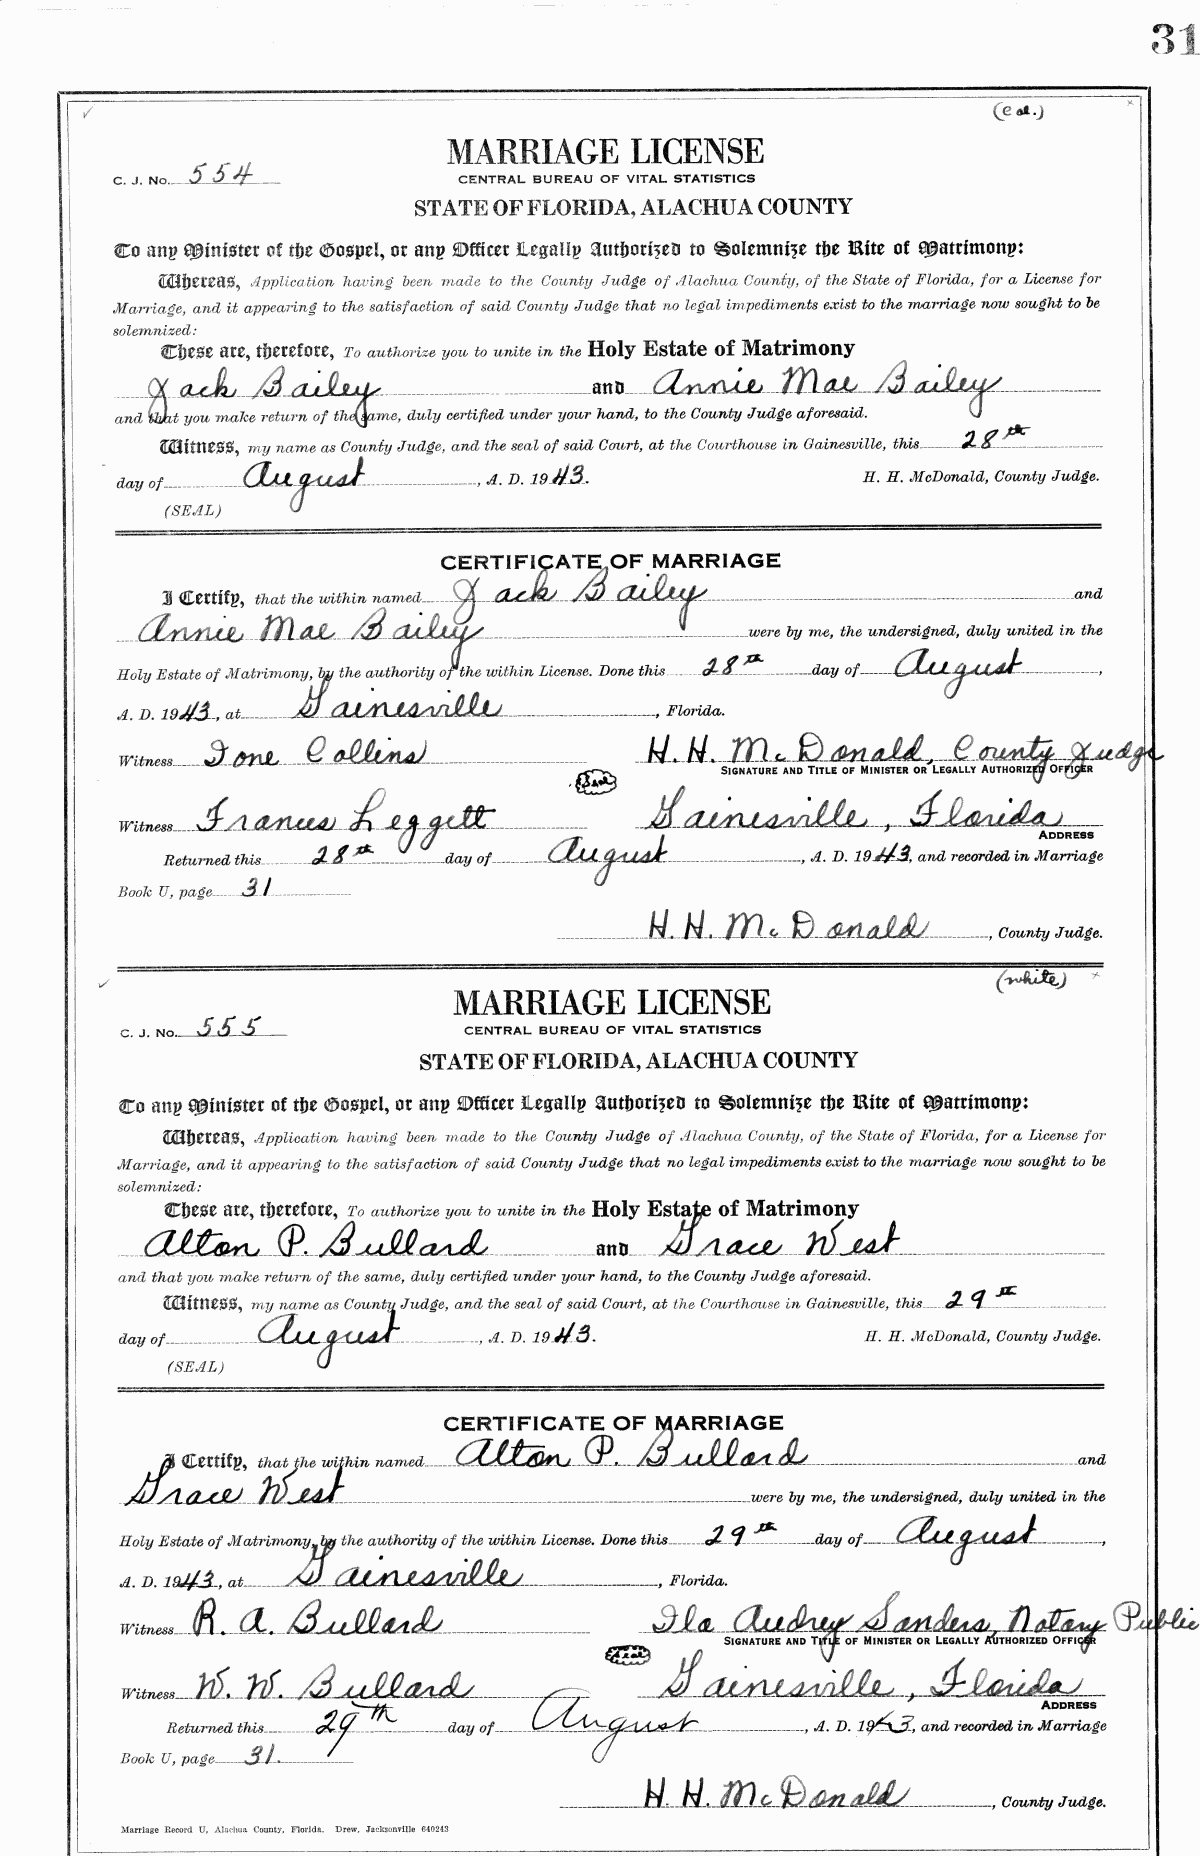 31
(Col.)
MARRIAGE LICENSE
C. J. No. 554
CENTRAL BUREAU OF VITAL STATISTICS
STATE OF FLORIDA, ALACHUA COUNTY
To any Minister of the Gospel, or any Officer Legally Authorized to Solemnize the Rite of Matrimony:
Whereas, Application having been made to the County Judge of Alachua County, of the State of Florida, for a License for
Marriage, and it appearing to the satisfaction of said County Judge that no legal impediments exist to the marriage now sought to be
solemnized:
These are, therefore, To authorize you to unite in the Holy Estate of Matrimony
Jack Bailey and Annie Mae Bailey
and that you make return of the same, duly certified under your hand, to the County Judge aforesaid.
Witness, my name as County Judge, and the seal of said Court, at the Courthouse in Gainesville, this 28th
day of August, A. D. 1943. H. H. McDonald, County Judge.
(SEAL)
CERTIFICATE OF MARRIAGE
I Certify, that the within named Jack Bailey and
Annie Mae Bailey were by me, the undersigned, duly united in the
Holy Estate of Matrimony, by the authority of the within License. Done this 28th day of August,
A. D. 1943, at Gainesville, Florida.
Witness Ione Collins H. H. McDonald, County Judge
SIGNATURE AND TITLE OF MINISTER OR LEGALLY AUTHORIZED OFFICER
Seal
Witness Frances Leggett Gainesville, Florida
ADDRESS
Returned this 28th day of August, A. D. 1943, and recorded in Marriage
Book U, page 31
H. H. McDonald, County Judge.
(white)
MARRIAGE LICENSE
C. J. No. 555
CENTRAL BUREAU OF VITAL STATISTICS
STATE OF FLORIDA, ALACHUA COUNTY
To any Minister of the Gospel, or any Officer Legally Authorized to Solemnize the Rite of Matrimony:
Whereas, Application having been made to the County Judge of Alachua County, of the State of Florida, for a License for
Marriage, and it appearing to the satisfaction of said County Judge that no legal impediments exist to the marriage now sought to be
solemnized:
These are, therefore, To authorize you to unite in the Holy Estate of Matrimony
Alton P. Bullard and Grace West
and that you make return of the same, duly certified under your hand, to the County Judge aforesaid.
Witness, my name as County Judge, and the seal of said Court, at the Courthouse in Gainesville, this 29th
day of August, A. D. 1943. H. H. McDonald, County Judge.
(SEAL)
CERTIFICATE OF MARRIAGE
I Certify, that the within named Alton P. Bullard and
Grace West were by me, the undersigned, duly united in the
Holy Estate of Matrimony, by the authority of the within License. Done this 29th day of August,
A. D. 1943, at Gainesville, Florida.
Witness R. A. Bullard Ila Audrey Sanders, Notary Public
SIGNATURE AND TITLE OF MINISTER OR LEGALLY AUTHORIZED OFFICER
Seal
Witness W. W. Bullard Gainesville, Florida
ADDRESS
Returned this 29th day of August, A. D. 1943, and recorded in Marriage
Book U, page 31.
H. H. McDonald, County Judge.
Marriage Record U, Alachua County, Florida. Drew, Jacksonville 640243